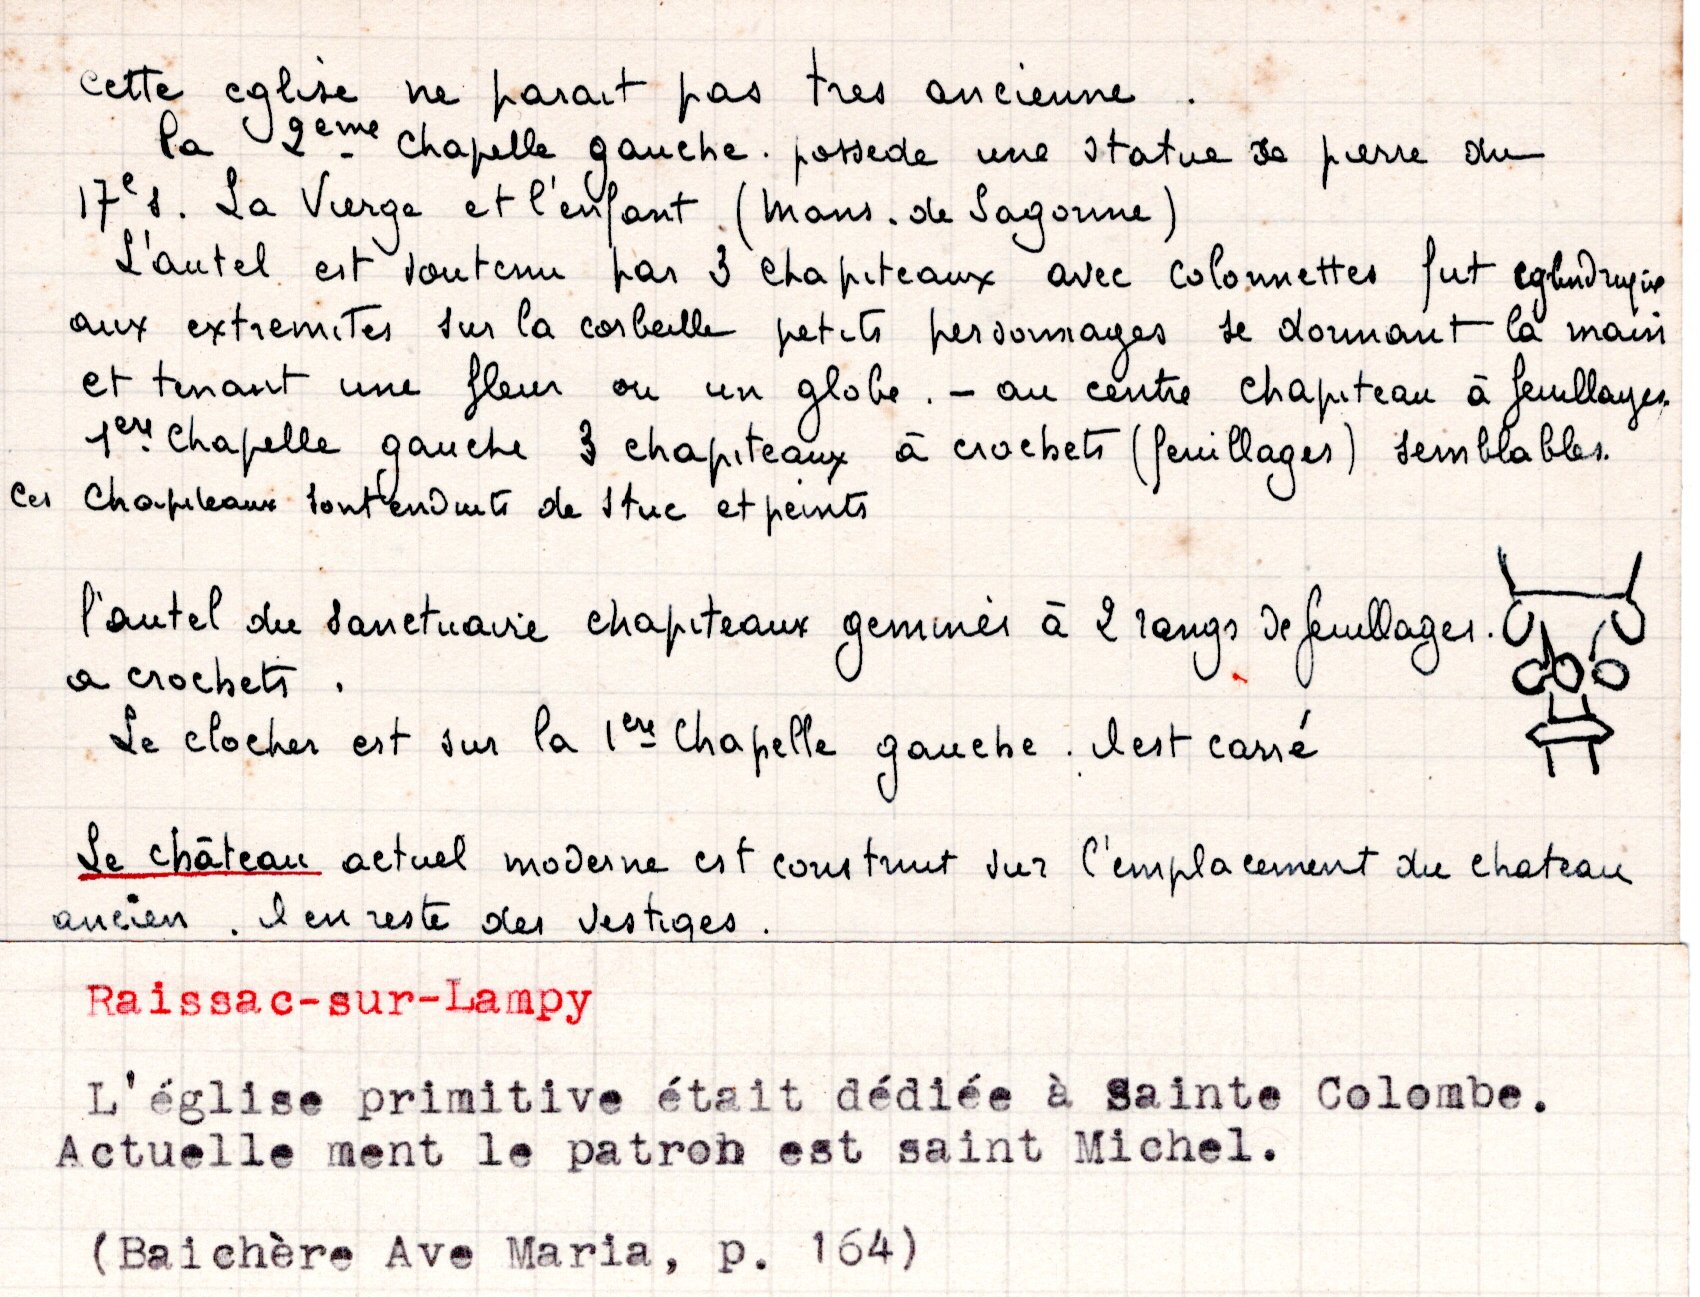 cette eglise ne parait pas tres ancienne .
la 2eme chapelle gauche . possede une statue de pierre du
17e s. La Vierge et l'enfant (Mans. de Sagonne)
L'autel est soutenu par 3 chapiteaux avec colonnettes fut cylindrique
aux extremites sur la corbeille petits personnages se donnant la main
et tenant une fleur ou un globe . - au centre chapiteau à feuillages.
1ere chapelle gauche 3 chapiteaux à crochets (feuillages) semblables.
Ces chapiteaux sont enduits de stuc et peints
l'autel du sanctuaire chapiteaux geminés à 2 rangs de feuillages .
a crochets .
Le clocher est sur la 1ere chapelle gauche . Il est carré
Le château actuel moderne est construit sur l'emplacement du chateau
ancien . Il en reste des vestiges .
Raissac-sur-Lampy
L'église primitive était dédiée à Sainte Colombe.
Actuelle ment le patron est saint Michel.
(Baichère Ave Maria, p. 164)